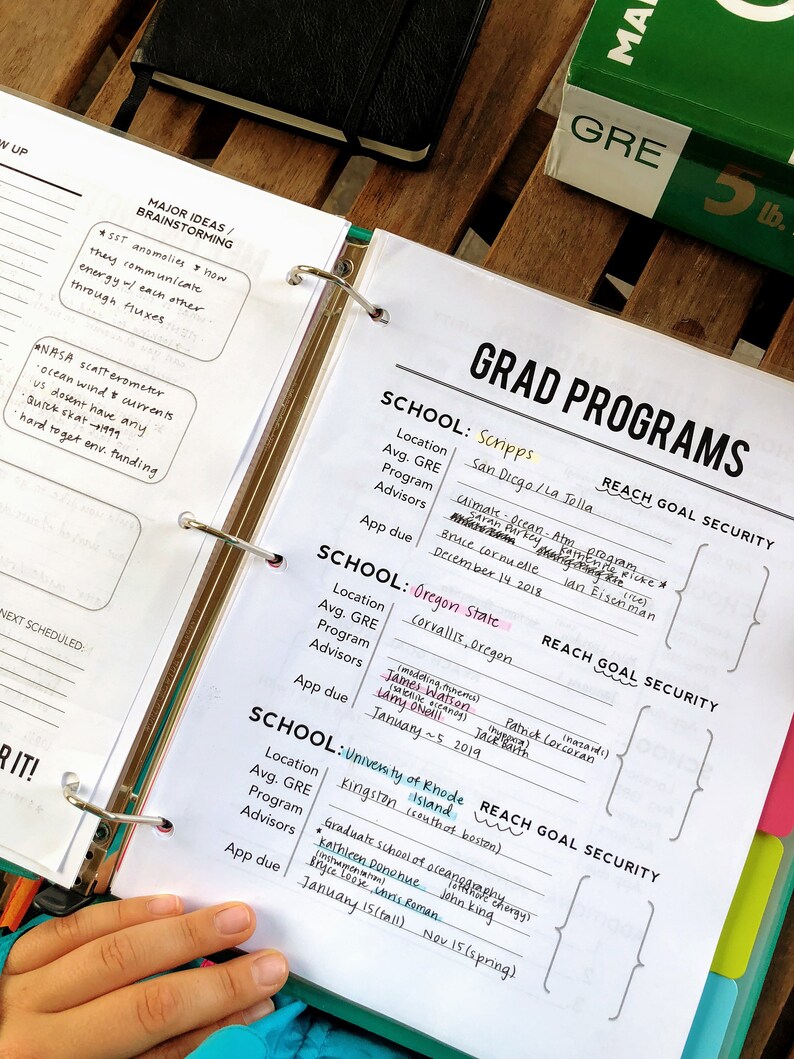 MAN
GRE
5 lb.
W UP
MAJOR IDEAS /
BRAINSTORMING
* SST anomolies & how
they communicate
energy w/ each other
through fluxes
*NASA scatterometer
• ocean wind & currents
• US dosent have any
• Quick skat → 1999
• hard to get env. funding
NEXT SCHEDULED:
R IT!
GRAD PROGRAMS
SCHOOL: Scripps
REACH GOAL SECURITY
Location San Diego / La Jolla
Avg. GRE
Program Climate - Ocean - Atm program
Advisors Sarah Purkey Katherine Ricke *
Bruce Cornuelle Ian Eisenman (ice)
App due December 14 2018
SCHOOL: Oregon State
REACH GOAL SECURITY
Location Corvallis, Oregon
Avg. GRE
Program
Advisors (modeling, fisheries)
James Watson Patrick Corcoran (hazards)
(satellite oceanog)
Larry O'Neill Jack Barth (hypoxia)
App due January ~5 2019
SCHOOL: University of Rhode
Island
REACH GOAL SECURITY
Location Kingston (south of boston)
Avg. GRE
Program Graduate school of oceanography
Advisors * Kathleen Donohue John King (offshore energy)
(instrumentation)
Bryce Loose, Chris Roman
App due January 15 (fall) Nov 15 (spring)